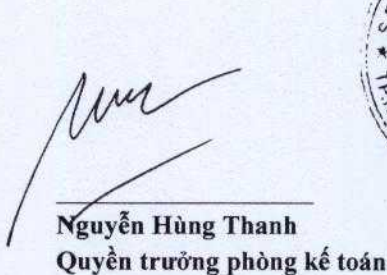 Nguyễn Hùng Thanh
Quyền trưởng phòng kế toán